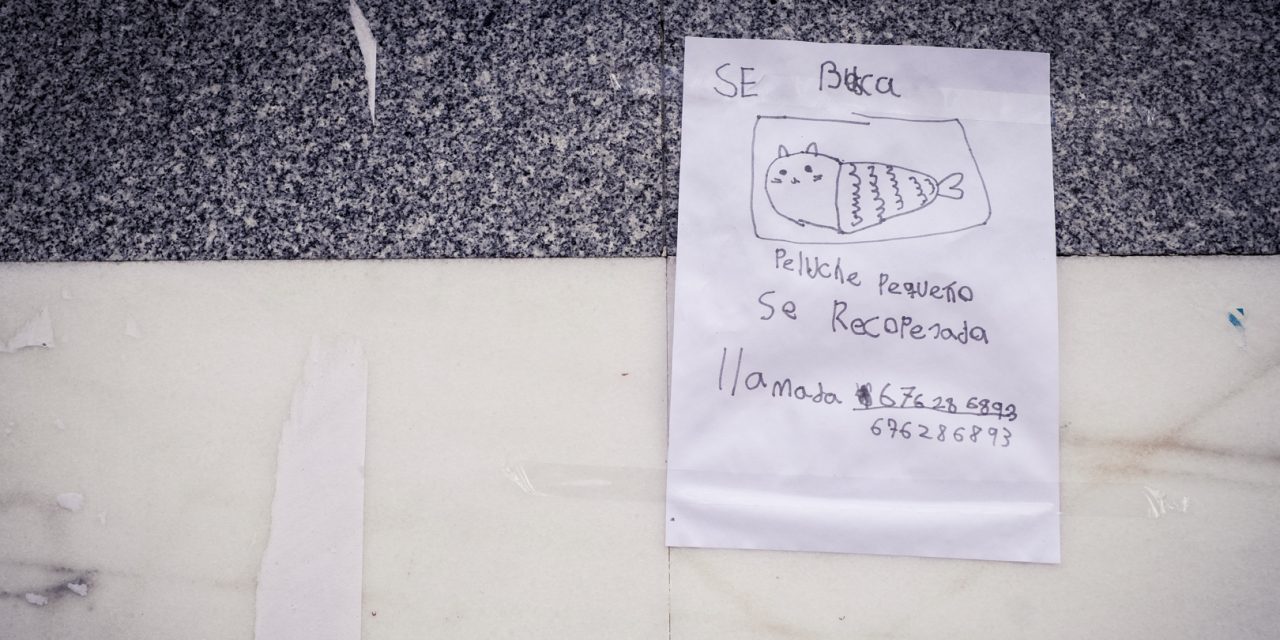 SE Busca
Peluche Pequeño
Se Recopesada
llamada 676286893
676286893